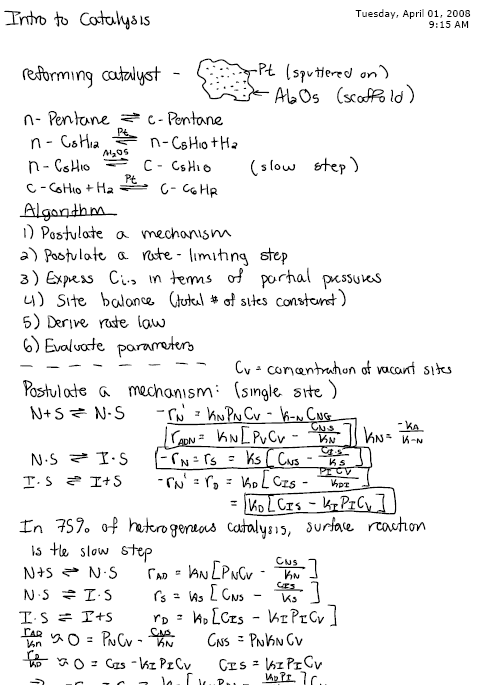 Intro to Catalysis
Tuesday, April 01, 2008
9:15 AM
reforming catalyst - Pt (sputtered on)
Al2O3 (scaffold)
n-Pentane ⇌ c-Pentane
n-C5H12 ⇌ n-C5H10+H2
Pt
n-C5H10 ⇌ C-C5H10 (slow step)
Al2O3
C-C5H10+H2 ⇌ C-C6H12
Pt
Algorithm
1) Postulate a mechanism
2) Postulate a rate-limiting step
3) Express Ci.s in terms of partial pressures
4) Site balance (total # of sites constant)
5) Derive rate law
6) Evaluate parameters
Cv = concentration of vacant sites
Postulate a mechanism: (single site)
N+S ⇌ N·S -rN' = kNPNCv - k-NCNS
rADN = kN[PVCv - CNS/KN] KN = -kA/k-N
N·S ⇌ I·S -rN = rS = kS[CNS - CIS/KS]
I·S ⇌ I+S -rN' = rD = kD[CIS - PICv/KDI]
= kD[CIS - KIPICv]
In 75% of heterogeneous catalysis, surface reaction
is the slow step
N+S ⇌ N·S rAD = kN[PNCv - CNS/KN]
N·S ⇌ I·S rS = kS[CNS - CIS/KS]
I·S ⇌ I+S rD = kD[CIS - KIPICv]
rAD/kN ≈ 0 = PNCv - CNS/KN CNS = PNKNCv
rD/kD ≈ 0 = CIS - KIPICv CIS = KIPICv